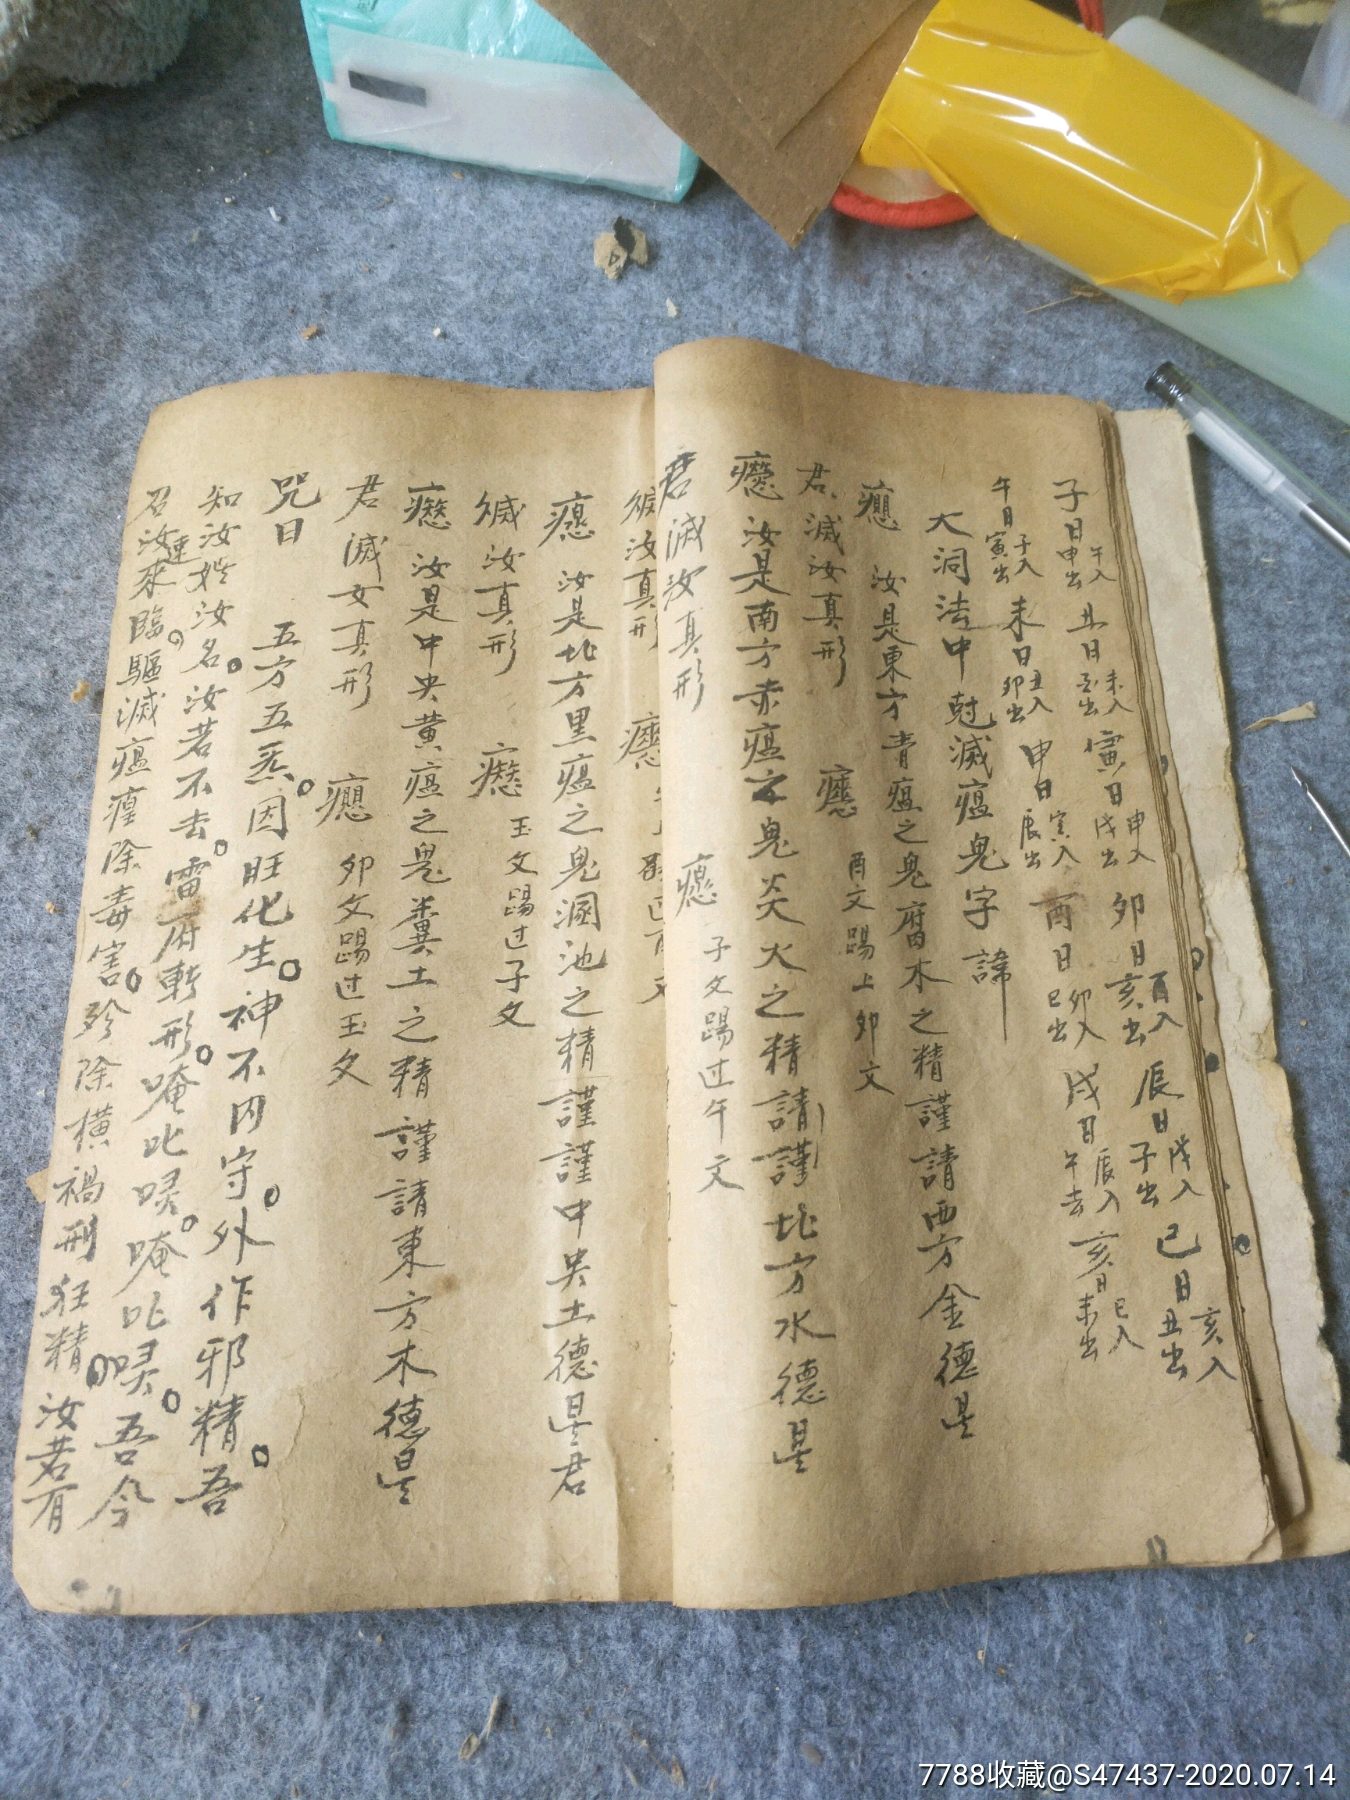 子日午入申出 丑日未入 寅日申入戌出 卯日酉入亥出 辰日戌入子出 巳日亥入丑出
午日子入寅出 未日丑入卯出 申日寅入辰出 酉日卯入巳出 戌日辰入午去 亥日巳入未出
大洞法中尅滅瘟鬼字諱
汝是東方青瘟之鬼腐木之精謹請西方金德星
君滅汝真形 酉文踢上卯文
汝是南方赤瘟之鬼炎火之精請謹北方水德星
君滅汝真形 子文踢过午文
汝真形
汝是北方黑瘟之鬼溷池之精謹謹中央土德星君
滅汝真形 玉文踢过子文
汝是中央黄瘟之鬼糞土之精謹請東方木德星
君滅女真形 卯文踢过玉文
咒曰 五方五炁。因旺化生。神不内守。外作邪精。吾
知汝姓汝名。汝若不去。雷府斬形。唵吡㖶。唵吡㖶。吾今
召汝速來臨。驅滅瘟𤶊除毒害。殄除橫禍刑狂精。汝若有
7788收藏@S47437-2020.07.14